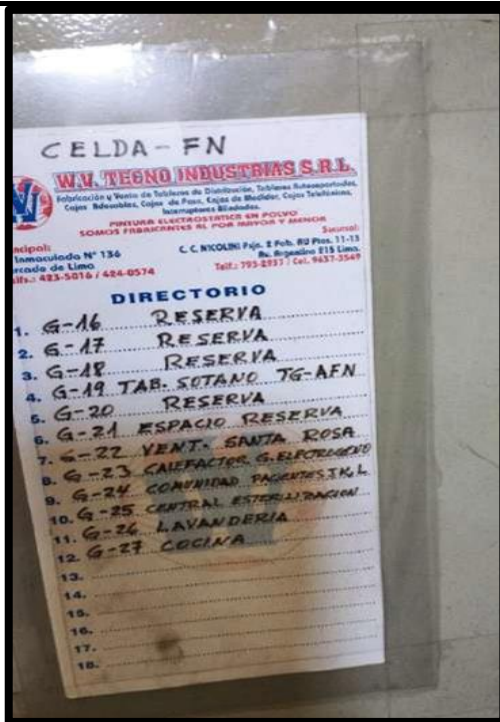 CELDA-FN
W.V. TECNO INDUSTRIAS S.R.L.
Fabricación y Venta de Tableros de Distribución, Tableros Autosoportados,
Cajas Adosables, Cajas de Paso, Cajas de Medidor, Cajas Telefónicas,
Interruptores Blindados.
PINTURA ELECTROSTATICA EN POLVO
SOMOS FABRICANTES AL POR MAYOR Y MENOR
ncipal:
Inmaculada N° 136
rcado de Lima
lfs.: 423-5016 / 424-0574
Sucursal:
C. C. NICOLINI Psje. 2 Pab. RU Ptos. 11-13
Av. Argentina 215 Lima.
Telf.: 793-2937 / Cel. 9637-3549
DIRECTORIO
1. G-16 RESERVA
2. G-17 RESERVA
3. G-18 RESERVA
4. G-19 TAB. SOTANO TG-AFN
5. G-20 RESERVA
6. G-21 ESPACIO RESERVA
7. G-22 VENT. SANTA ROSA
8. G-23 CALEFACTOR G.ELECTROGENO
9. G-24 COMUNIDAD PACIENTES
10. G-25 CENTRAL ESTERILIZACION
11. G-26 LAVANDERIA
12. G-27 COCINA
13.
14.
15.
16.
17.
18.